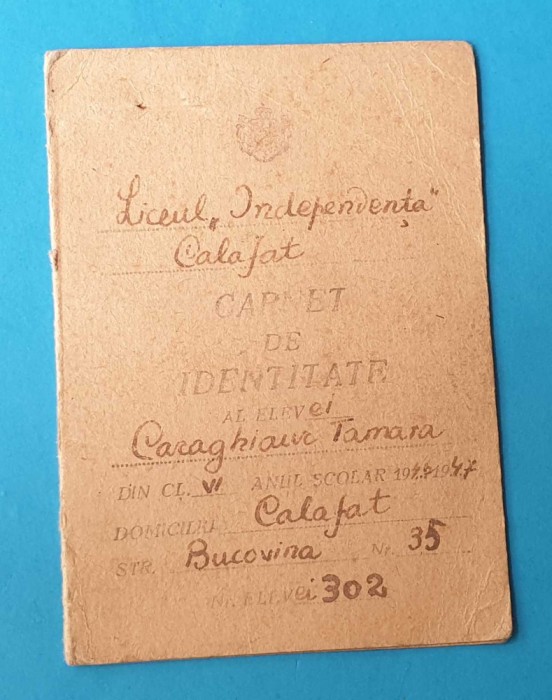 Liceul „Independenţa"
Calafat
CARNET
DE
IDENTITATE
AL ELEVei
Caraghiaur Tamara
DIN CL. VI ANUL ŞCOLAR 1946-1947
DOMICILIUL Calafat
STR. Bucovina Nr. 35
Nr. ELEVei 302